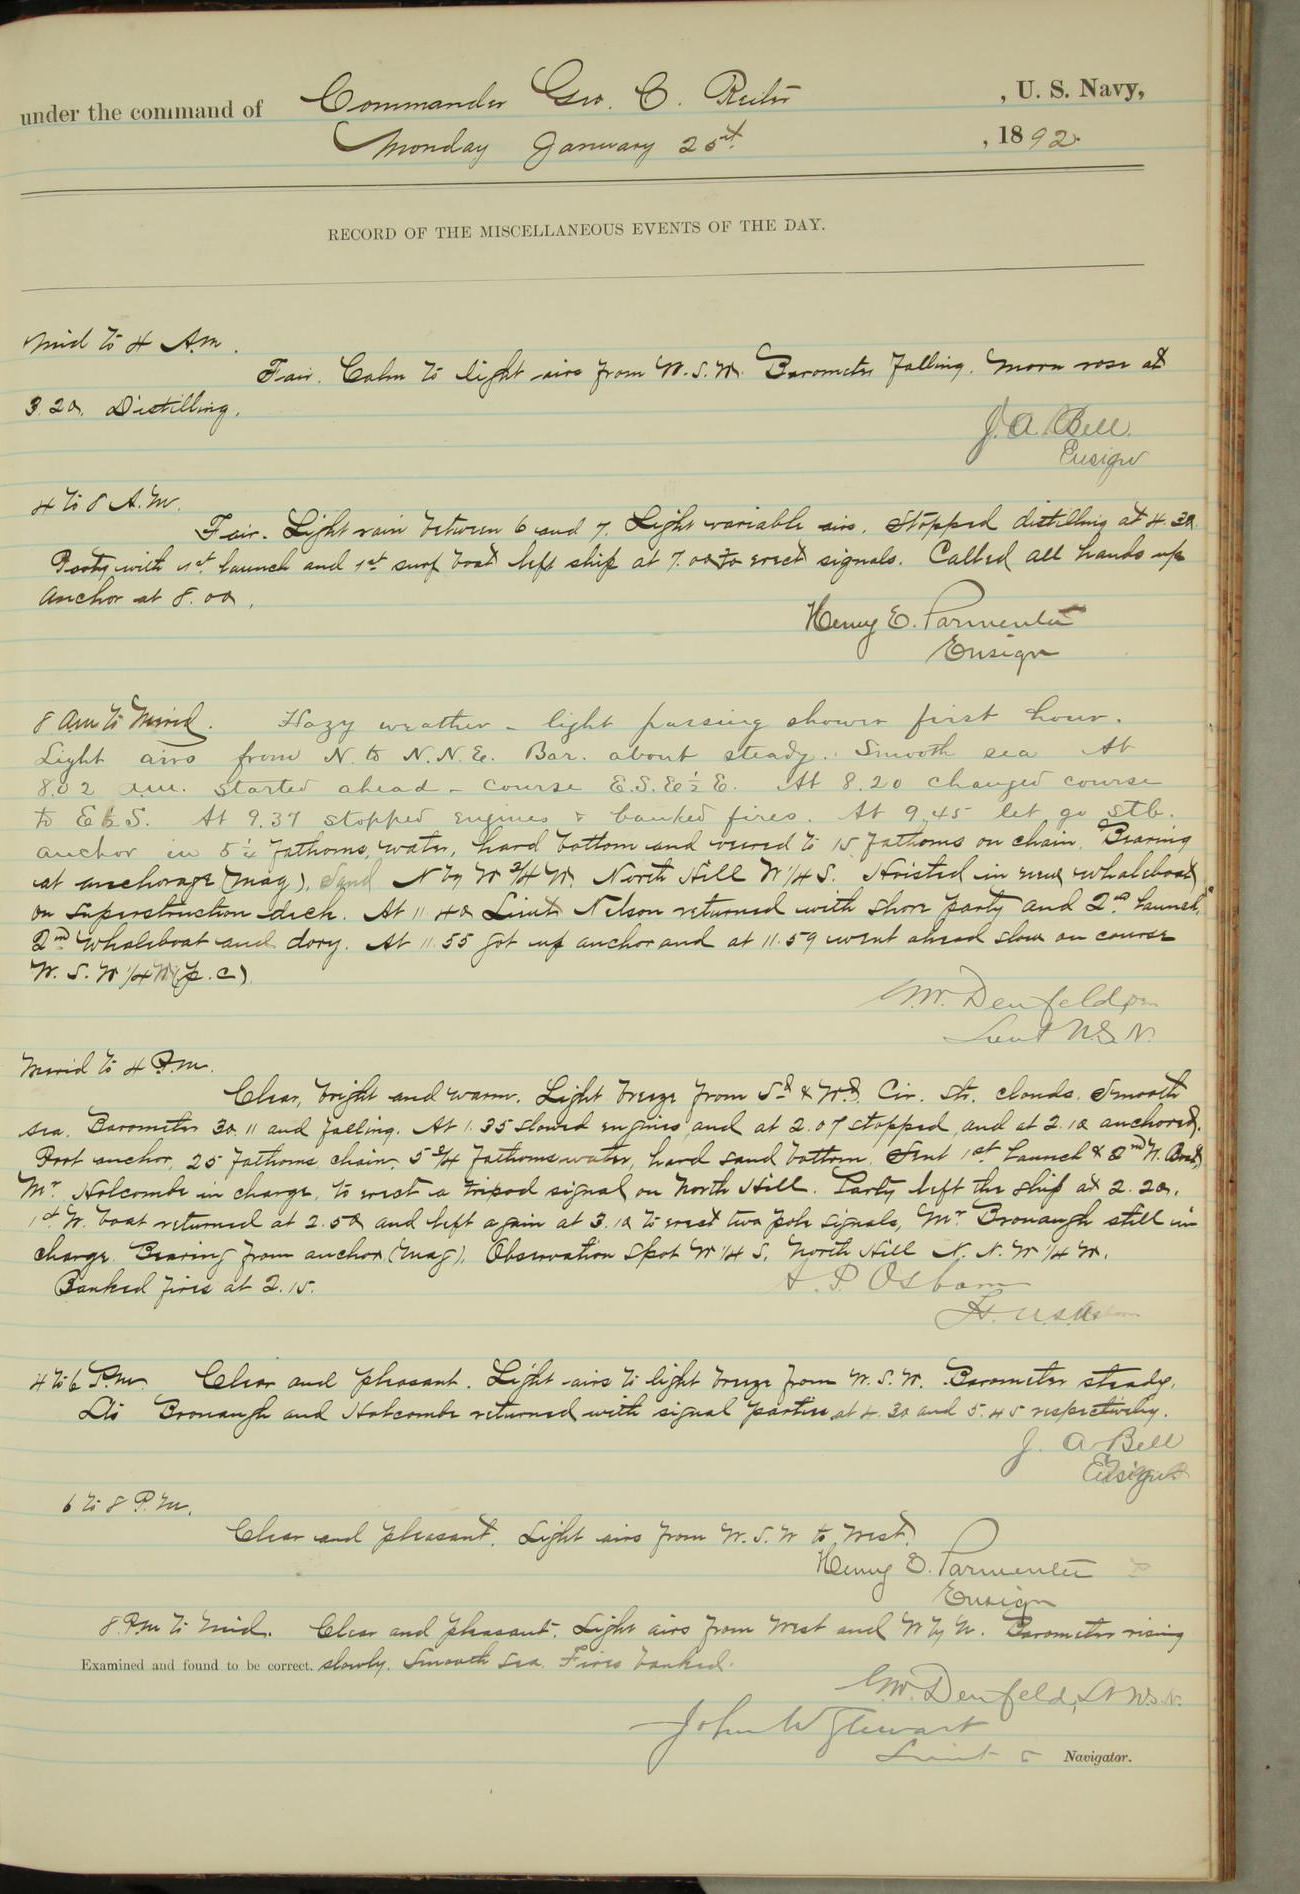 under the command of Commander Geo. C. Reiter, U. S. Navy,
Monday January 25th, 1892.
RECORD OF THE MISCELLANEOUS EVENTS OF THE DAY.
Mid to 4 A.M.
Fair. Calm to light airs from W.S.W. Barometer falling. Moon rose at
3.20. Distilling.
J. A. Bell.
Ensign
4 to 8 A.M.
Fair. Light rain between 6 and 7. Light variable airs. Stopped distilling at 4.30.
Party with 1st launch and 1st surf boat left ship at 7.00 to erect signals. Called all hands up
anchor at 8.00.
Henry E. Parmenter
Ensign
8 AM to Merid. Hazy weather - light passing shower first hour.
Light airs from N. to N.N.E. Bar. about steady. Smooth sea At
8.02 a.m. started ahead - course E.S.E ½ E. At 8.20 changed course
to E ½ S. At 9.37 stopped engines & banked fires. At 9.45 let go stb.
anchor in 5 ¼ fathoms, water, hard bottom and veered to 15 fathoms on chain. Bearing
at anchorage (mag). N by W 3/4 W. North Hill W 1/4 S. Hoisted in new whaleboat
on superstruction deck. At 11.40 Lieut Nelson returned with shore party and 2nd launch,
2nd whaleboat and dory. At 11.55 got up anchor and at 11.59 went ahead slow on course
W. S. W 1/4 W (p.c)
Denfeld
Lieut U.S.N.
Merid to 4 P.M.
Clear, bright and warm. Light breeze from Sd & Wd. Cir. Str. clouds. Smooth
sea. Barometer 30.11 and falling. At 1.35 slowed engines, and at 2.07 stopped, and at 2.10 anchored.
Port anchor, 25 fathoms, chain, 5 3/4 fathoms water, hard sand bottom. Sent 1st Launch & 2nd W. Boat,
Mr. Holcombe in charge, to erect a tripod signal on North Hill. Party left the ship at 2.20.
1st W. boat returned at 2.50 and left again at 3.10 to erect two pole signals, Mr. Bronaugh still in
charge. Bearing from anchor (Mag). Observation Spot W 1/4 S. North Hill N. N. W 1/4 W.
Banked fires at 2.15.
A. P. Osborn
4 to 6 P.M. Clear and pleasant. Light airs to light breeze from W. S. W. Barometer steady.
Lts Bronaugh and Holcombe returned with signal parties at 4.30 and 5.45 respectively.
J. A Bell
Ensign
6 to 8 P.M.
Clear and pleasant. Light airs from W. S. W to West.
Henry E. Parmenter
Ensign
8 P.M to Mid. Clear and pleasant. Light airs from West and W by N. Barometer rising
Examined and found to be correct. slowly. Smooth sea. Fires banked.
Denfeld, Lt U.S.N.
John W Stewart
Lieut Navigator.